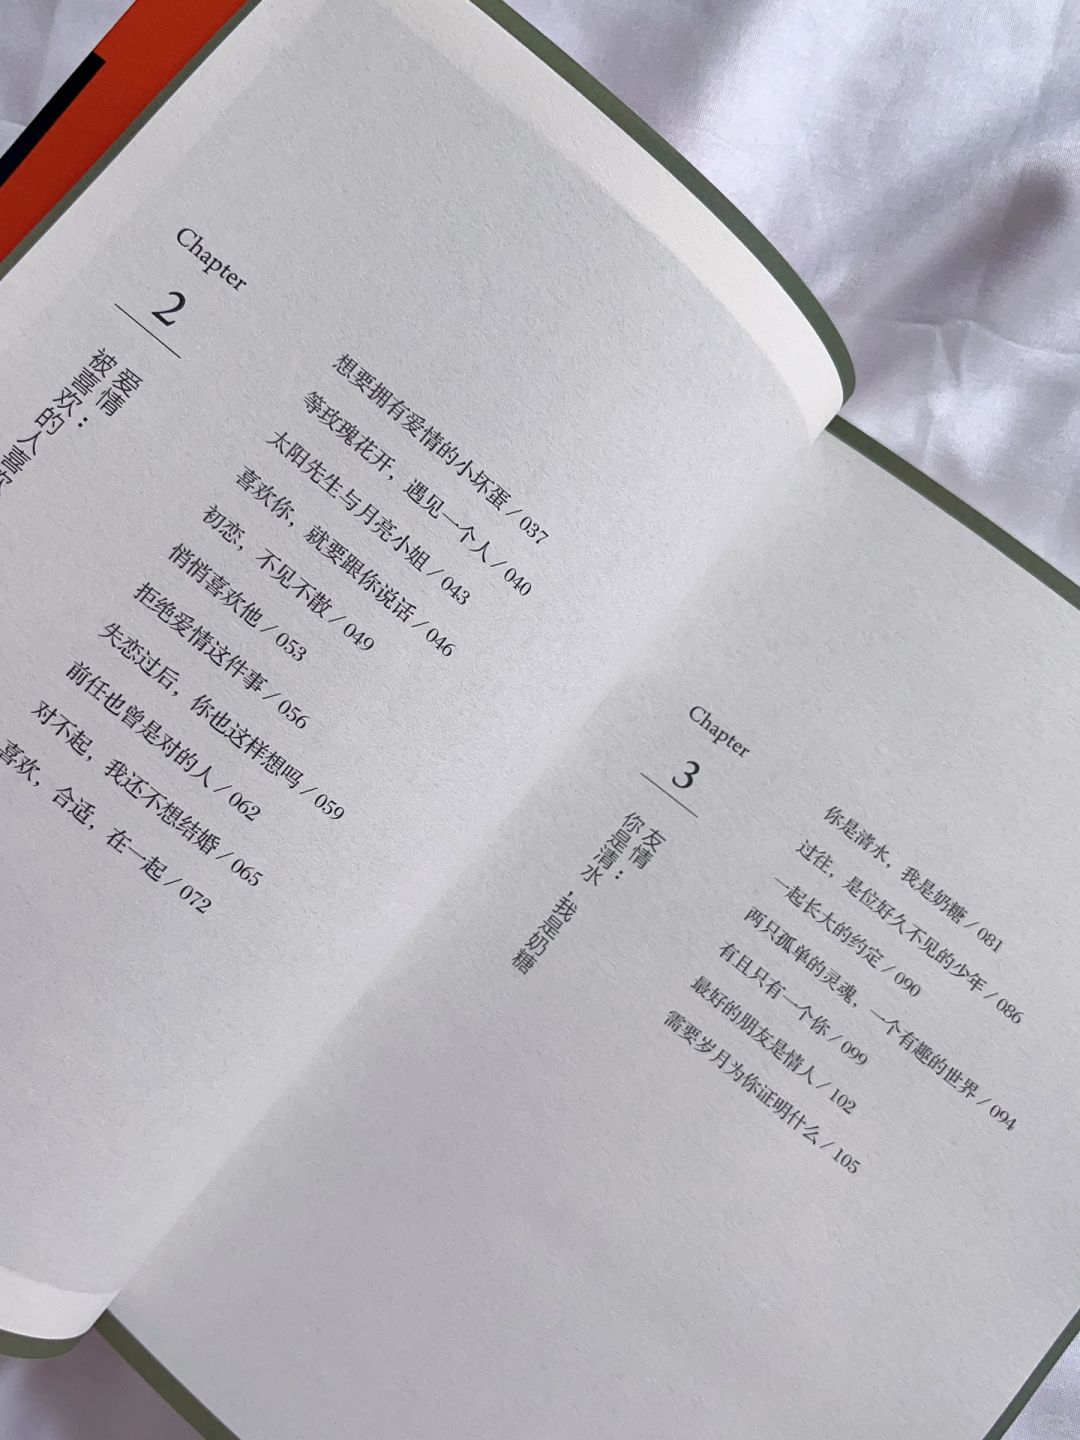 Chapter
2
爱情：
被喜欢的人喜欢
想要拥有爱情的小坏蛋 / 037
等玫瑰花开，遇见一个人 / 040
太阳先生与月亮小姐 / 043
喜欢你，就要跟你说话 / 046
初恋，不见不散 / 049
悄悄喜欢他 / 053
拒绝爱情这件事 / 056
失恋过后，你也这样想吗 / 059
前任也曾是对的人 / 062
对不起，我还不想结婚 / 065
喜欢，合适，在一起 / 072
Chapter
3
友情：
你是清水，我是奶糖
你是清水，我是奶糖 / 081
过往，是位好久不见的少年 / 086
一起长大的约定 / 090
两只孤单的灵魂，一个有趣的世界 / 094
有且只有一个你 / 099
最好的朋友是情人 / 102
需要岁月为你证明什么 / 105